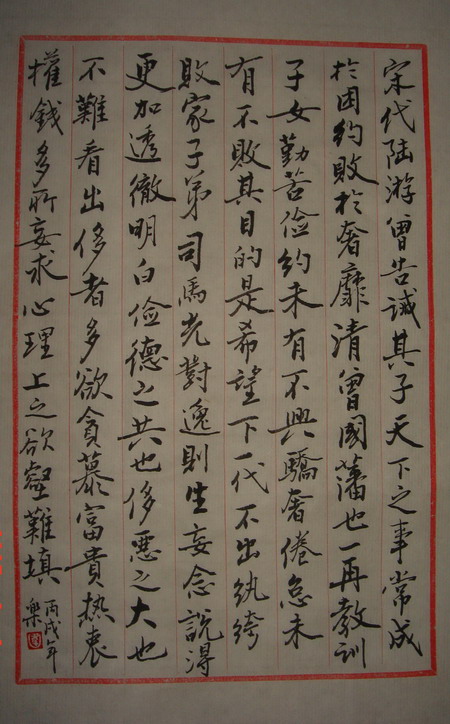 宋代陆游曾告诫其子天下之事常成
於困约败於奢靡清曾國藩也一再教训
子女勤苦俭约未有不興驕奢倦怠未
有不败其目的是希望下一代不出纨绔
败家子弟司馬光對逸則生妄念說得
更加透徹明白俭德之共也侈恶之大也
不難看出侈者多欲貪慕富貴热衷
權錢多所妄求心理上之欲壑難填
丙戌年
樂